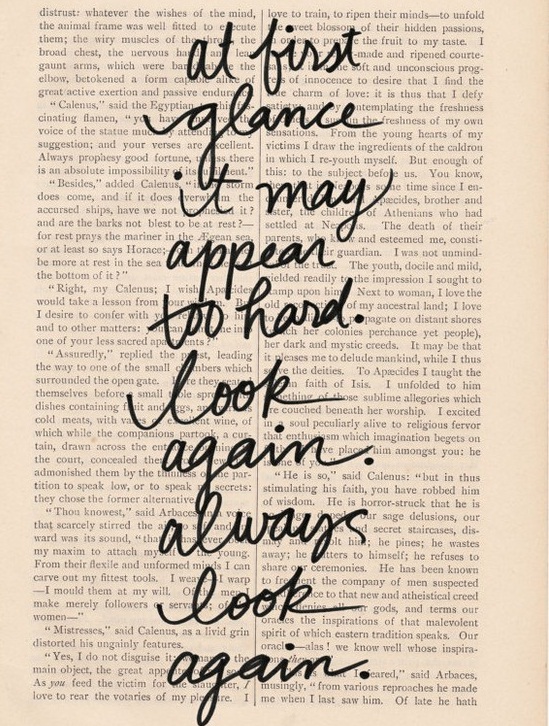 at first
glance
it may
appear
too hard.
look
again.
always
look
again.
distrust: whatever the wishes of the mind,
the animal frame was well fitted to execute
them; the wiry muscles of the
broad chest, the nervous
gaunt arms, which were
elbow, betokened a form
great active exertion and passive
“Calenus,” said the Egyptian
cinating flamen, “you
voice of the statue
suggestion; and your verses are excellent.
Always prophesy good fortune, there
is an absolute impossibility of its
“Besides,” added Calenus, storm
does come, and if it does the
accursed ships, have we not it?
and are the barks not blest to be at rest?—
for rest prays the mariner in the Ægean sea,
or at least so says Horace;
be more at rest in the sea
the bottom of it?”
“Right, my Calenus; I wish
would take a lesson from your
I desire to confer with
and to other matters: in
one of your less sacred
“Assuredly,” replied the leading
the way to one of the small which
surrounded the open gate.
themselves before small
dishes containing fruit and eggs,
cold meats, with wine, of
which while the companions a cur-
tain, drawn across the
the court, concealed
admonished them by the thinness of the par-
tition to speak low, or to speak secrets:
they chose the former alternative.
“Thou knowest,” said Arbaces
that scarcely stirred the
ward was its sound, “that
my maxim to attach the young.
From their flexile and unformed minds I can
carve out my fittest tools. I warp
—I mould them at my will. Of
make merely followers
women—”
“Mistresses,” said Calenus, as a livid grin
distorted his ungainly features.
“Yes, I do not disguise it;
main object, the great
As you feed the victim for the slaughter, I
love to rear the votaries of my I
love to train, to ripen their minds—to unfold
blossom of their hidden passions,
the fruit to my taste. I
-made and ripened courte-
and unconscious prog-
of innocence to desire that I find the
charm of love: it is thus that I defy
contemplating the freshness
the freshness of my own
sensations. From the young hearts of my
victims I draw the ingredients of the caldron
in which I re-youth myself. But enough of
this: to the subject before us. You know,
time since I en-
brother and
of Athenians who had
settled at The death of their
parents, and esteemed me, consti-
guardian. I was not unmind-
The youth, docile and mild,
yielded readily to the impression I sought to
upon Next to woman, I love the
old of my ancestral land; I love
propagate on distant shores
her colonies perchance yet people),
her dark and mystic creeds. It may be that
pleases me to delude mankind, while I thus
the deities. To Apæcides I taught the
faith of Isis. I unfolded to him
sublime allegories which
are couched beneath her worship. I excited
soul peculiarly alive to religious fervor
that which imagination begets on
place him amongst you: he
“He is so,” said Calenus: “but in thus
stimulating his faith, you have robbed him
of wisdom. He is horror-struck that he is
our sage delusions, our
secret staircases, dis-
him; he pines; he wastes
away; he mutters to himself; he refuses to
share our ceremonies. He has been known
to the company of men suspected
to that new and atheistical creed
our gods, and terms our
oracles the inspirations of that malevolent
spirit of which eastern tradition speaks. Our
oracles—alas! we know well whose inspira-
feared,” said Arbaces,
musingly, “from various reproaches he made
me when I last saw him. Of late he hath